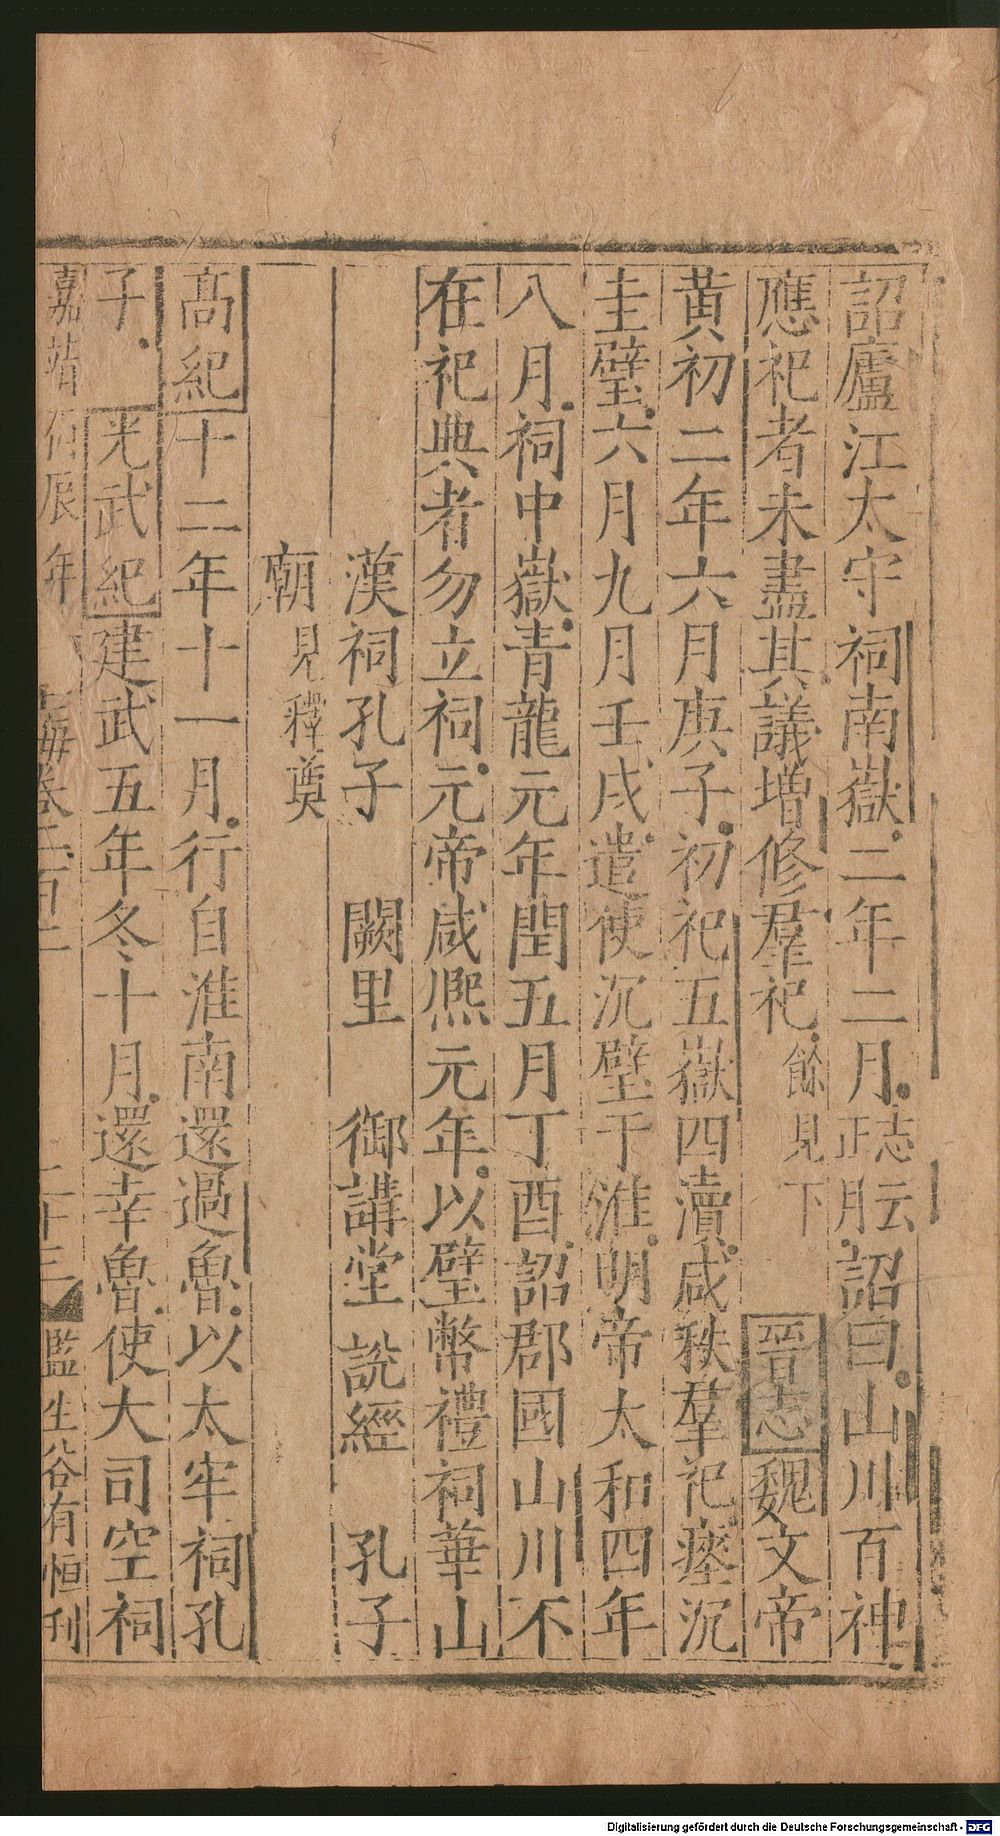 詔廬江太守祠南嶽二年二月志云正月詔曰山川百神
應祀者未盡其議增修羣祀餘見下晉志魏文帝
黃初二年六月庚子初祀五嶽四瀆咸秩羣祀瘞沉
圭璧六月九月壬戌遣使沉璧于淮明帝太和四年
八月祠中嶽青龍元年閏五月丁酉詔郡國山川不
在祀典者勿立祠元帝咸熙元年以璧幣禮祠華山
漢祠孔子 闕里 御講堂 說經 孔子
廟見釋奠
高紀十二年十一月行自淮南還過魯以太牢祠孔
子光武紀建武五年冬十月還幸魯使大司空祠
嘉靖 辰年 海卷 百二 二十三 監生谷有恒刊
Digitalisierung gefördert durch die Deutsche Forschungsgemeinschaft - DFG